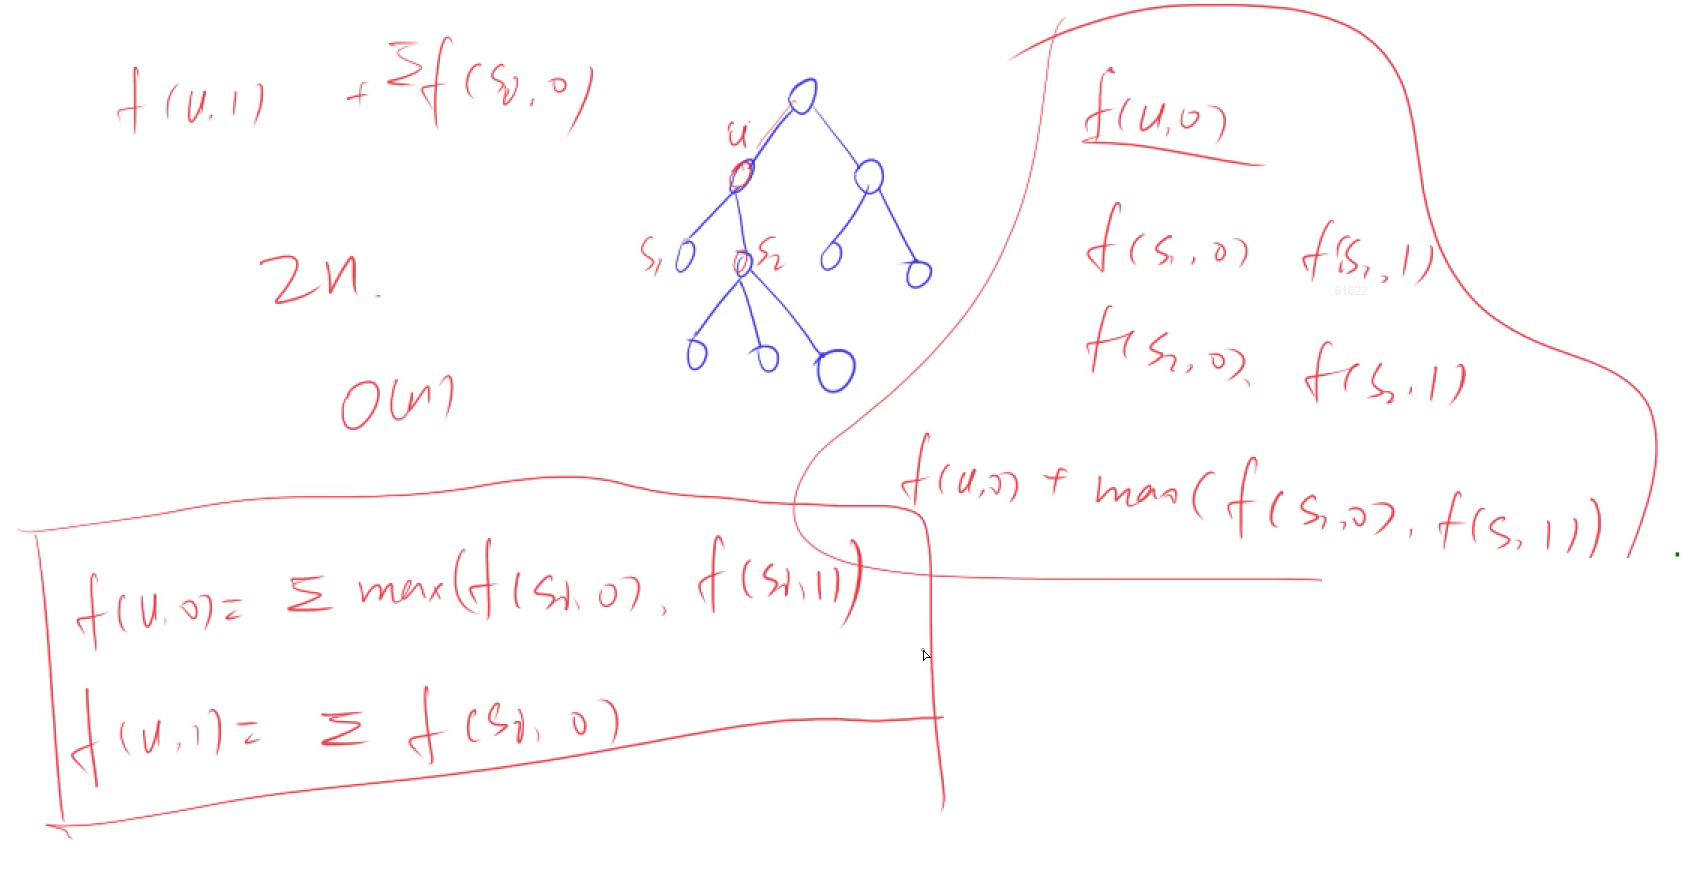 f(u,1) + Σf(si,0)
2n.
O(n)
u
s1
s2
f(u,0)
f(s1,0) f(s1,1)
61622
f(s2,0), f(s2,1)
f(u,0) + max(f(s1,0), f(s1,1))
f(u,0) = Σ max(f(si,0), f(si,1))
f(u,1) = Σ f(si,0)